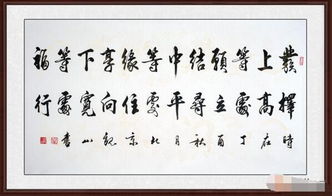 發上等願结中等缘享下等福
擇高處立尋平處住向寬處行
時在丁酉秋月北京山書